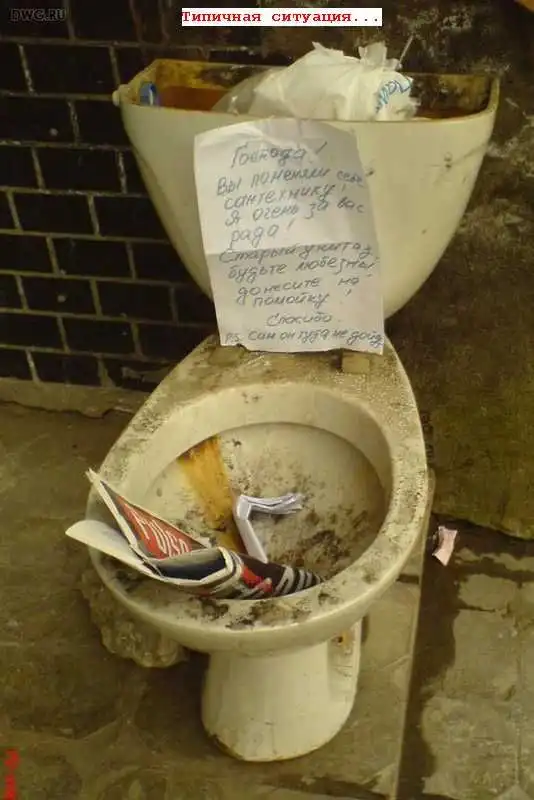 DWG.RU
Типичная ситуация...
Господа!
Вы поменяли себе
сантехнику!
Я очень за вас
рада!
Старый унитаз,
будьте любезны,
донесите на
помойку!
Спасибо.
P.S. Сам он туда не дойд